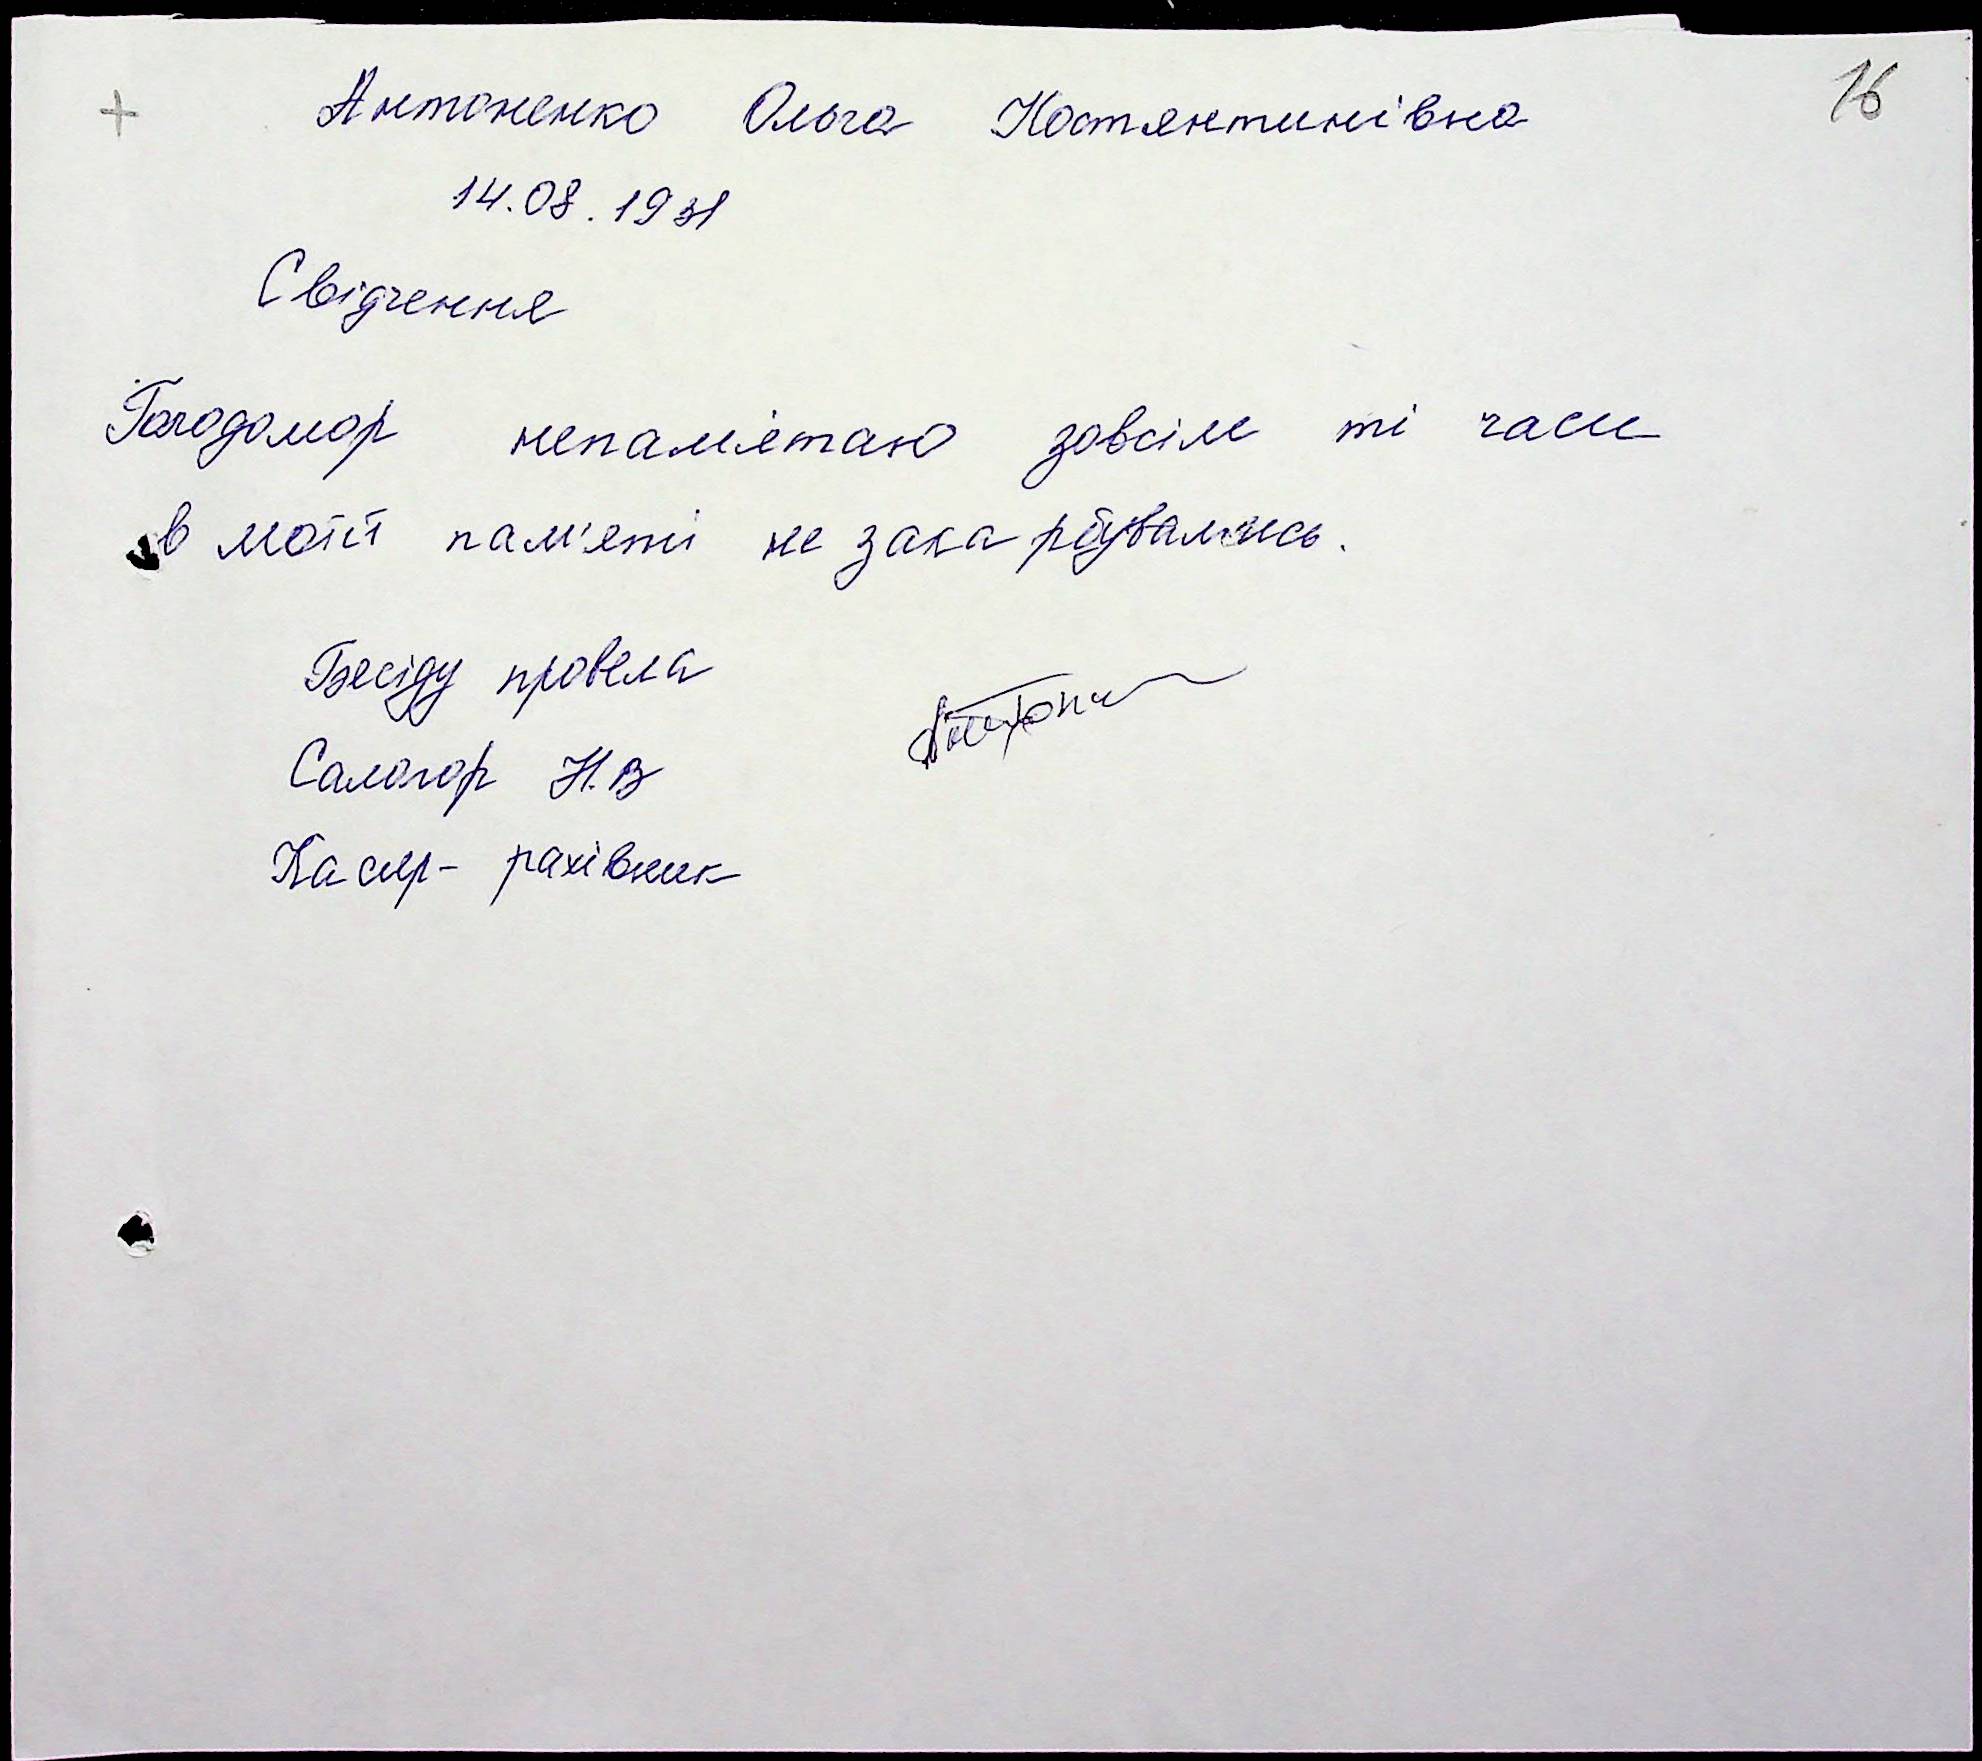 + Антоненко Ольга Костянтинівна 16
14.08.1931
Свідчення
Голодомор непамятаю зовсім ті часи
в моїй пам'яті не закарбувались.
Бесіду провела
Салогор Н.В
Касир - рахівник